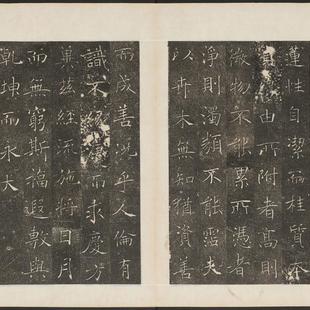 蓮性自潔而桂質本
貞由所附者高則
微物不能累所憑者
淨則濁類不能霑夫
以卉木無知猶資善
而成善況乎人倫有
識不慶而求慶方
冀茲經流施將日月
而無窮斯福遐敷與
乾坤而永大